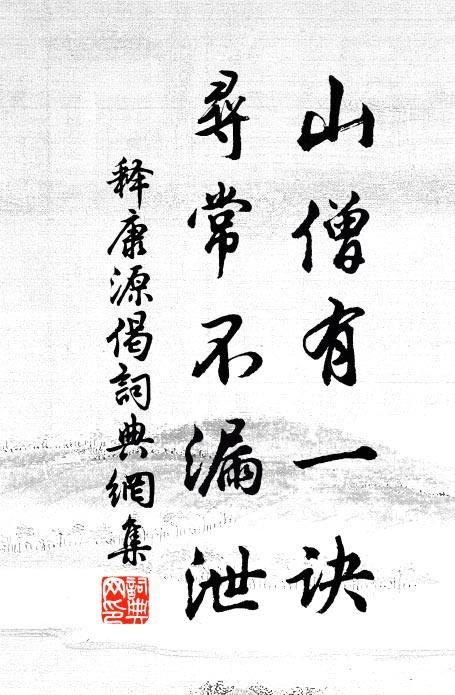 山僧有一诀
尋常不漏泄
释康源偈詞典網集
詞典网印